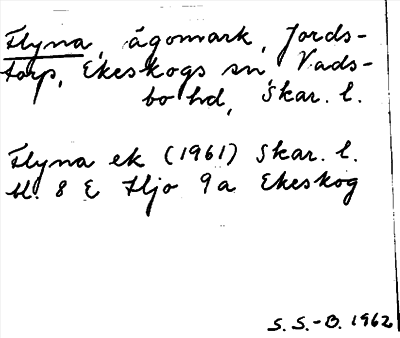 Flyna, ägomark, Jords-
torp, Ekeskogs sn, Vads-
bo hd, Skar. l.
Flyna ek (1961) Skar. l.
bl. 8 E Hjo 9a Ekeskog
S. S.-B. 1962